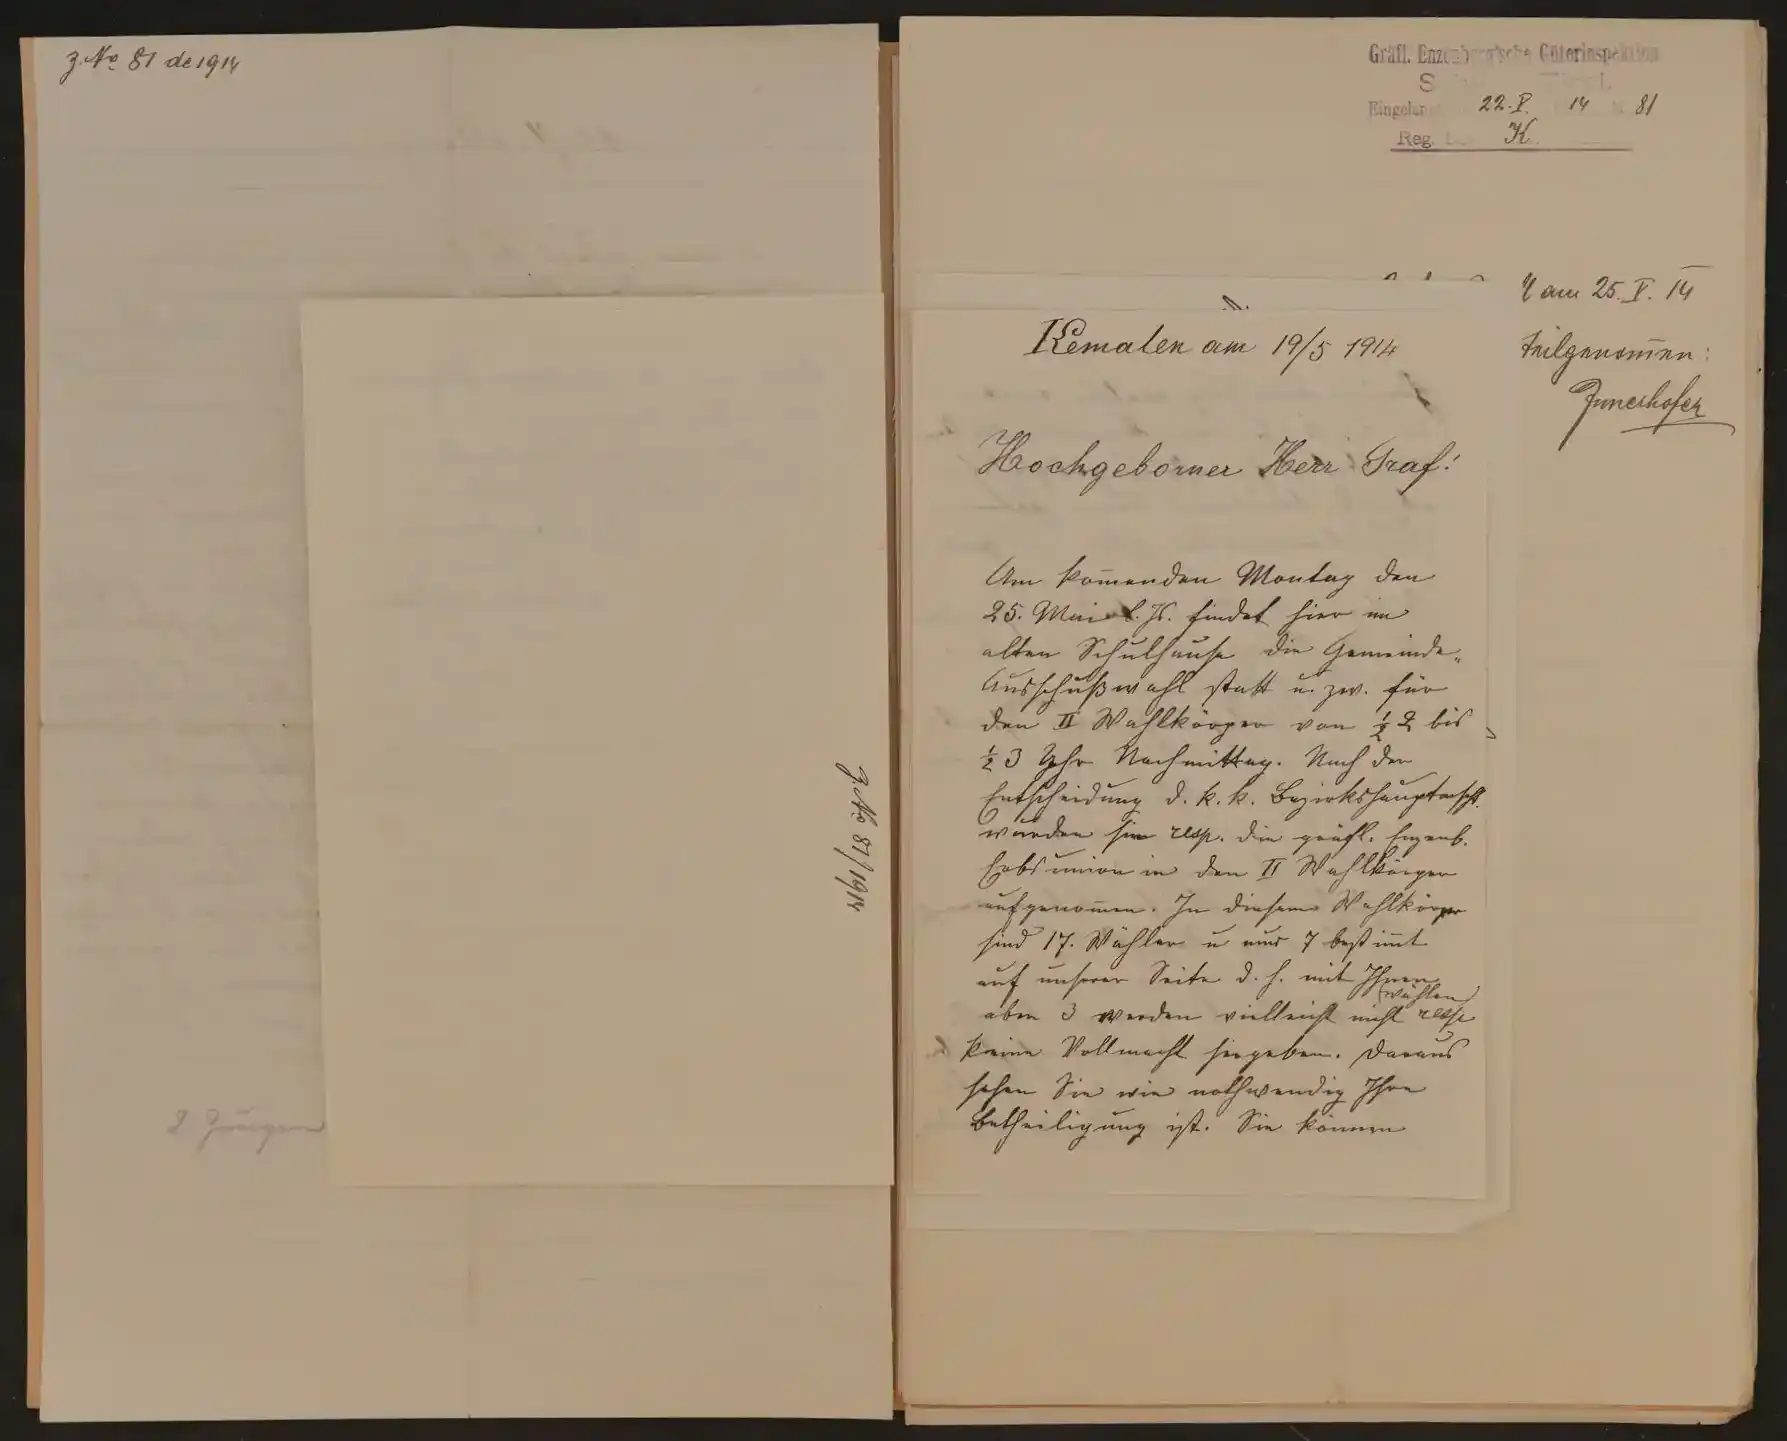 z. No 81 de 1914
2 Zeugen
z. No 81/1914
Gräfl. Enzenberg'sche Güterinspektion
Eingelangt 22. V. 14 81
Reg. K.
am 25. V. 14
teilgenom̅en:
Kematen am 19/5 1914
Hochgeborner Herr Graf!
Am kom̅enden Montag den
25. Mai l. Js. findet hier im
alten Schulhause die Gemeinde-
Ausschußwahl statt u. zw. für
den II Wahlkörper von ½ 2 bis
½ 3 Uhr Nachmittag. Nach der
Entscheidung d. k. k. Bezirkshauptmschft.
wurden sie resp. die gräfl. Enzenb.
in den II Wahlkörper
aufgenom̅en. In diesem Wahlkörper
sind 17. Wähler u nur 7 bestim̅t
auf unserer Seite d. h. mit Ihnen
aber 3 werden vielleicht nicht (wählen) resp
keine Vollmacht hergeben. Daraus
sehen Sie wie nothwendig Ihre
Betheiligung ist. Sie können